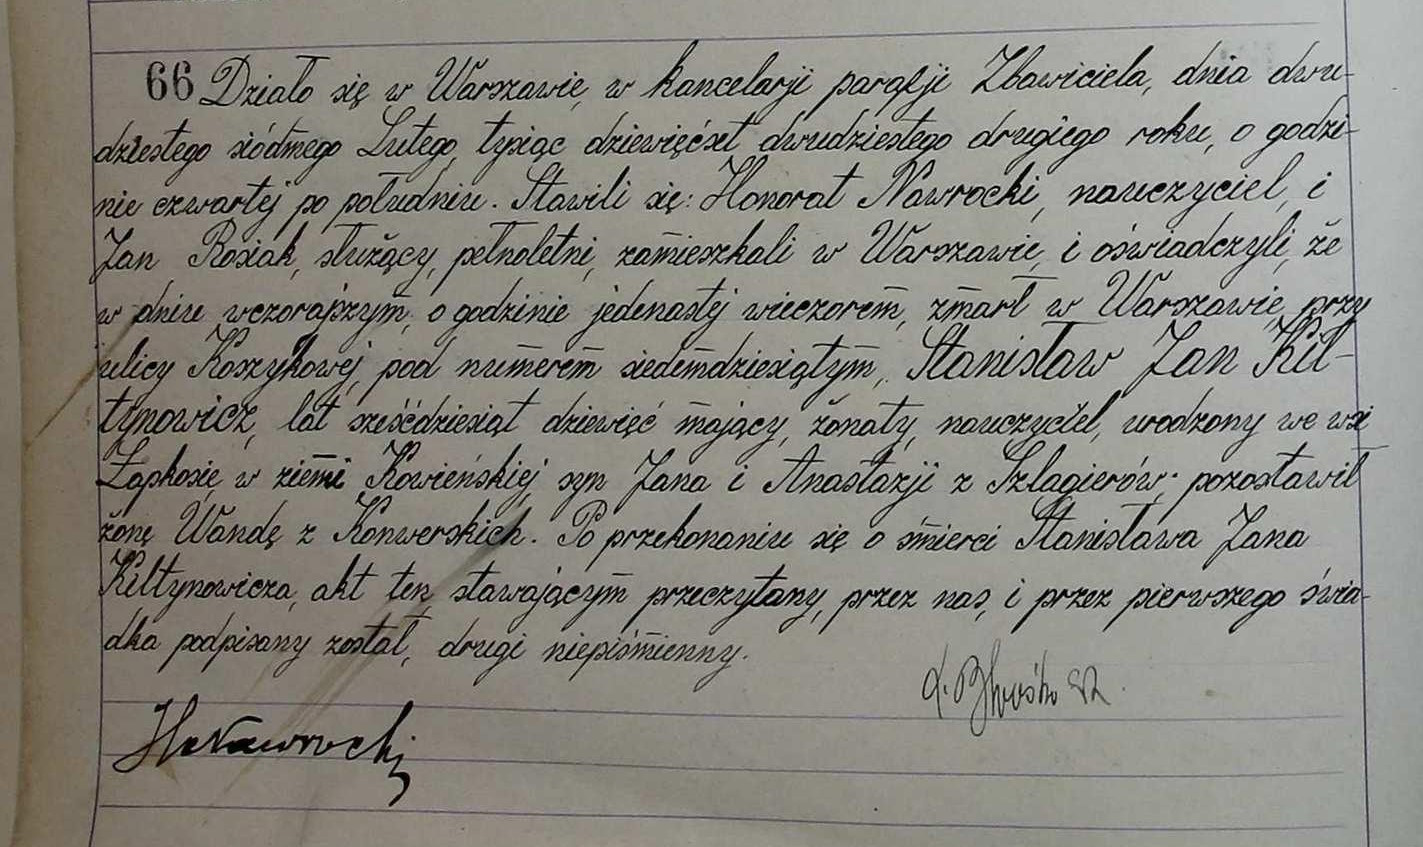 66 Działo się w Warszawie, w kancelarji parafji Zbawiciela, dnia dwu-
dziestego siódmego Lutego, tysiąc dziewięćset dwudziestego drugiego roku, o godzi-
nie czwartej po południu. Stawili się: Honorat Nawrocki, nauczyciel, i
Jan Rosiak, służący, pełnoletni, zamieszkali w Warszawie, i oświadczyli, że
w dniu wczorajszym, o godzinie jedenastej wieczorem, zmarł w Warszawie, przy
ulicy Koszykowej, pod numerem siedemdziesiątym, Stanisław Jan Kil-
tynowicz, lat sześćdziesiąt dziewięć mający, żonaty, nauczyciel, urodzony we wsi
Łapkosie, w ziemi Kowieńskiej, syn Jana i Anastazji z Szlagierów; pozostawił
żonę Wandę z Konwerskich. Po przekonaniu się o śmierci Stanisława Jana
Kiltynowicza, akt ten stawającym przeczytany, przez nas, i przez pierwszego świa-
dka podpisany został, drugi niepiśmienny.
HNawrocki